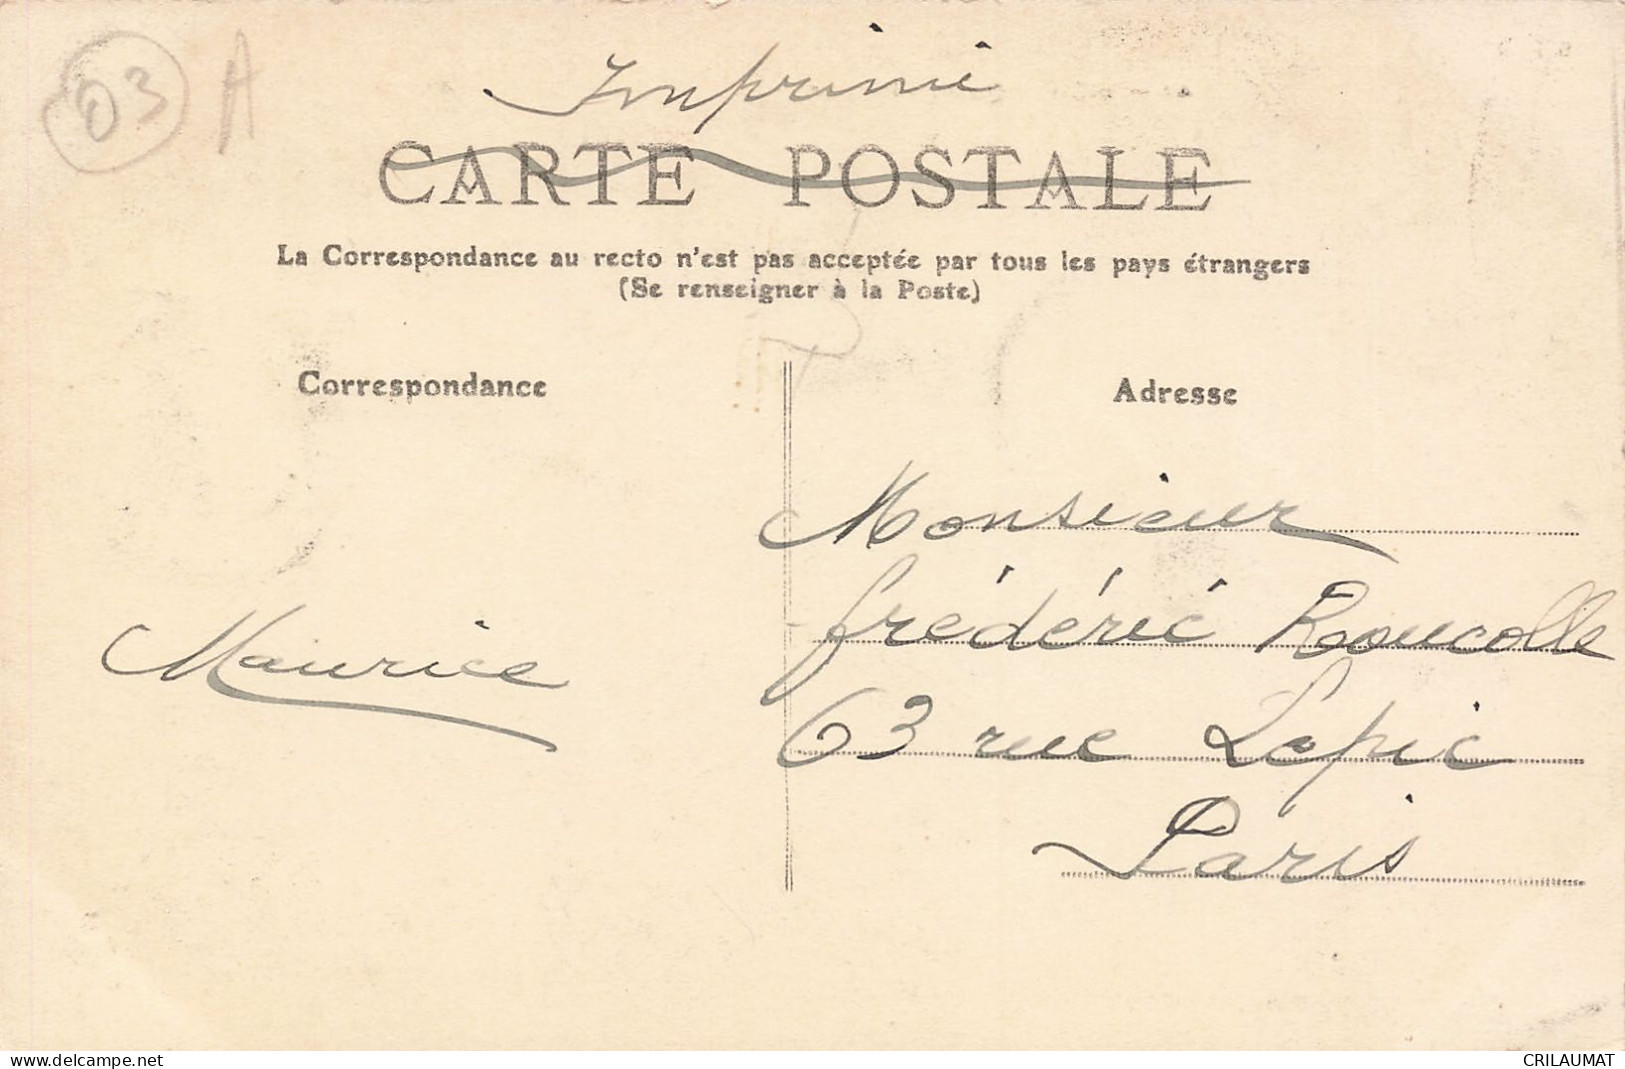 03 A
Imprimé
CARTE POSTALE
La Correspondance au recto n'est pas acceptée par tous les pays étrangers
(Se renseigner à la Poste)
Correspondance
Adresse
Monsieur
frédéric Rooucolle
Maurice
63 rue Lepic
Paris
www.delcampe.net
CRILAUMAT